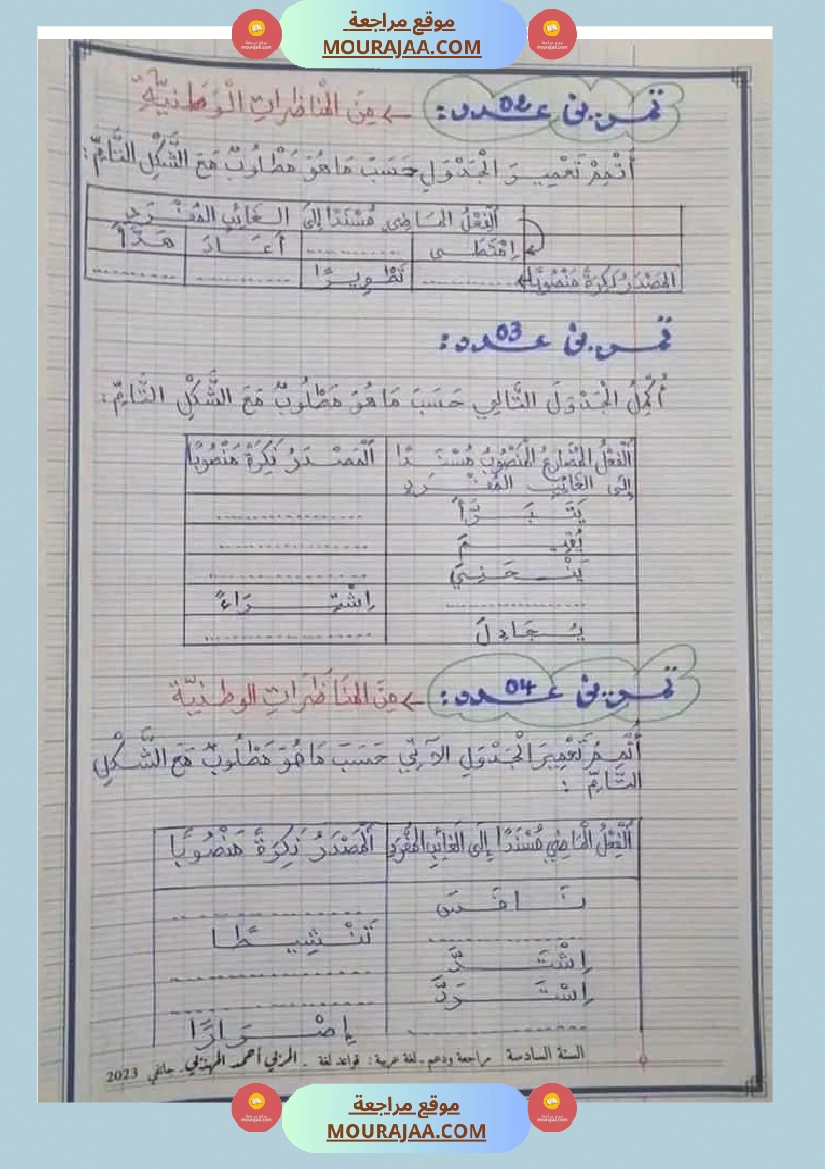 موقع مراجعة
MOURAJAA.COM
تمرين عدد 02: ← مِنَ المُناظراتِ الْوَطنيّةِ
أُتَمِّمُ تَعْمِيرَ الْجَدْوَلِ حَسَبَ مَا هُوَ مَطْلُوبٌ مَعَ الشَّكْلِ التَّامِّ:
اَلْفِعْلُ المَاضِي مُسْنَدًا إِلَى الغَائِبِ المُفْرَدِ
اِمْتَطَى ............ أَعَادَ هَدَّأَ
المَصْدَرُ نَكِرَةً مَنْصُوبًا ............ تَطْوِيرًا ............ ............
تمرين عدد 03:
أُكْمِلُ الْجَدْوَلَ التَّالِي حَسَبَ مَا هُوَ مَطْلُوبٌ مَعَ الشَّكْلِ التَّامِّ:
اَلْفِعْلُ المُضَارِعُ المَنْصُوبُ مُسْنَدًا إِلَى الغَائِبِ المُفْرَدِ
اَلْمَصْدَرُ نَكِرَةً مَنْصُوبًا
يَتَبَرَّأَ ............
يُقِيمَ ............
يَنْحَنِيَ ............
............ اِشْتِرَاءً
يُجَادِلَ ............
تمرين عدد 04: ← مِنَ المُنَاظَرَاتِ الوطنيّة
أُتَمِّمُ تَعْمِيرَ الْجَدْوَلِ الآتِي حَسَبَ مَا هُوَ مَطْلُوبٌ مَعَ الشَّكْلِ
التَّامِّ :
اَلْفِعْلُ الْمَاضِي مُسْنَدًا إِلَى الْغَائِبِ المُفْرَدِ
اَلْمَصْدَرُ نَكِرَةً مَنْصُوبًا
نَافَسَ ............
............ تَنْشِيطًا
اِشْتَدَّ ............
اِسْتَرَدَّ ............
............ إِصْرَارًا
السنة السادسة مراجعة ودعم - لغة عربية: قواعد لغة - المربي أحمد المهذبي - جانفي 2023
موقع مراجعة
MOURAJAA.COM